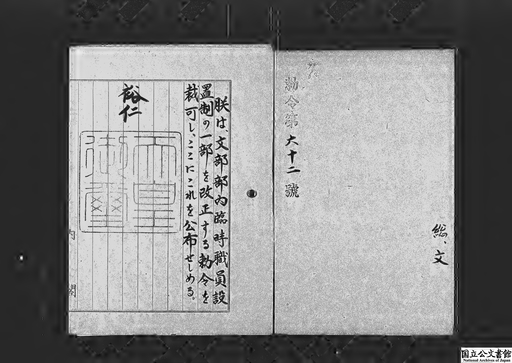 勅令第六十二號
総、文
朕は、文部部内臨時職員設
置制の一部を改正する勅令を
裁可し、ここにこれを公布せしめる。
裕仁
天皇
御璽
内閣
国立公文書館
National Archives of Japan